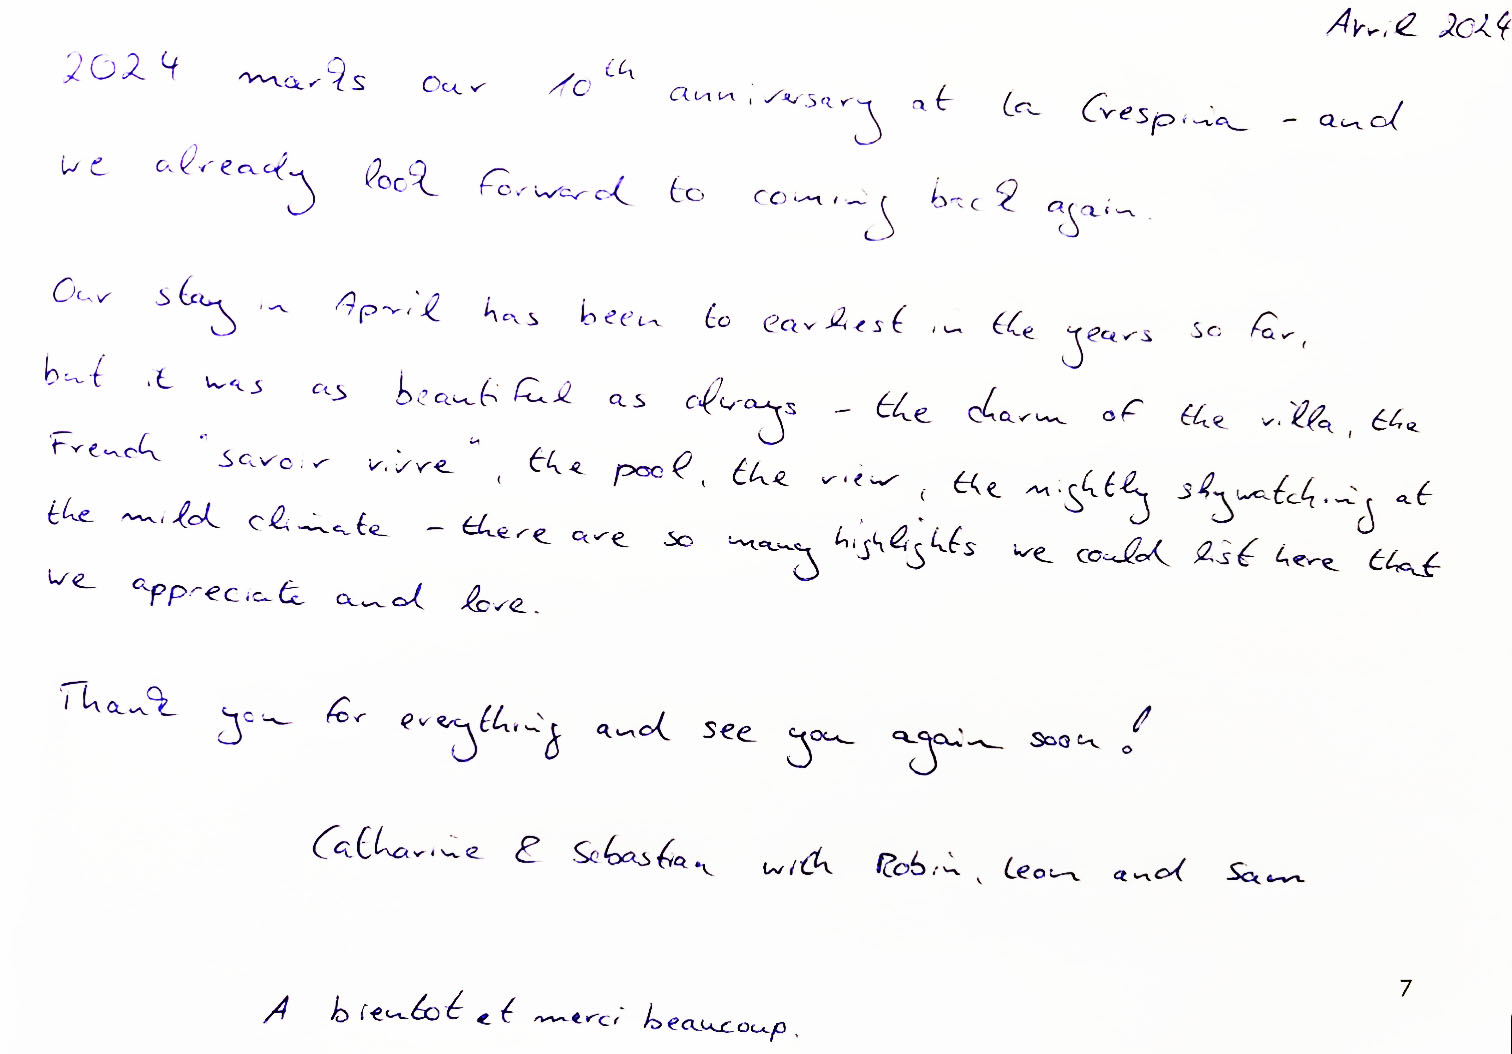 Avril 2024
2024 marks our 10th anniversary at la Crespinia - and
we already look forward to coming back again.
Our stay in April has been to earliest in the years so far,
but it was as beautiful as always - the charm of the villa, the
French "savoir vivre", the pool, the view, the nightly skywatching at
the mild climate - there are so many highlights we could list here that
we appreciate and love.
Thank you for everything and see you again soon!
Catharine & Sebastian with Robin, Leon and Sam
7
A bientot et merci beaucoup.